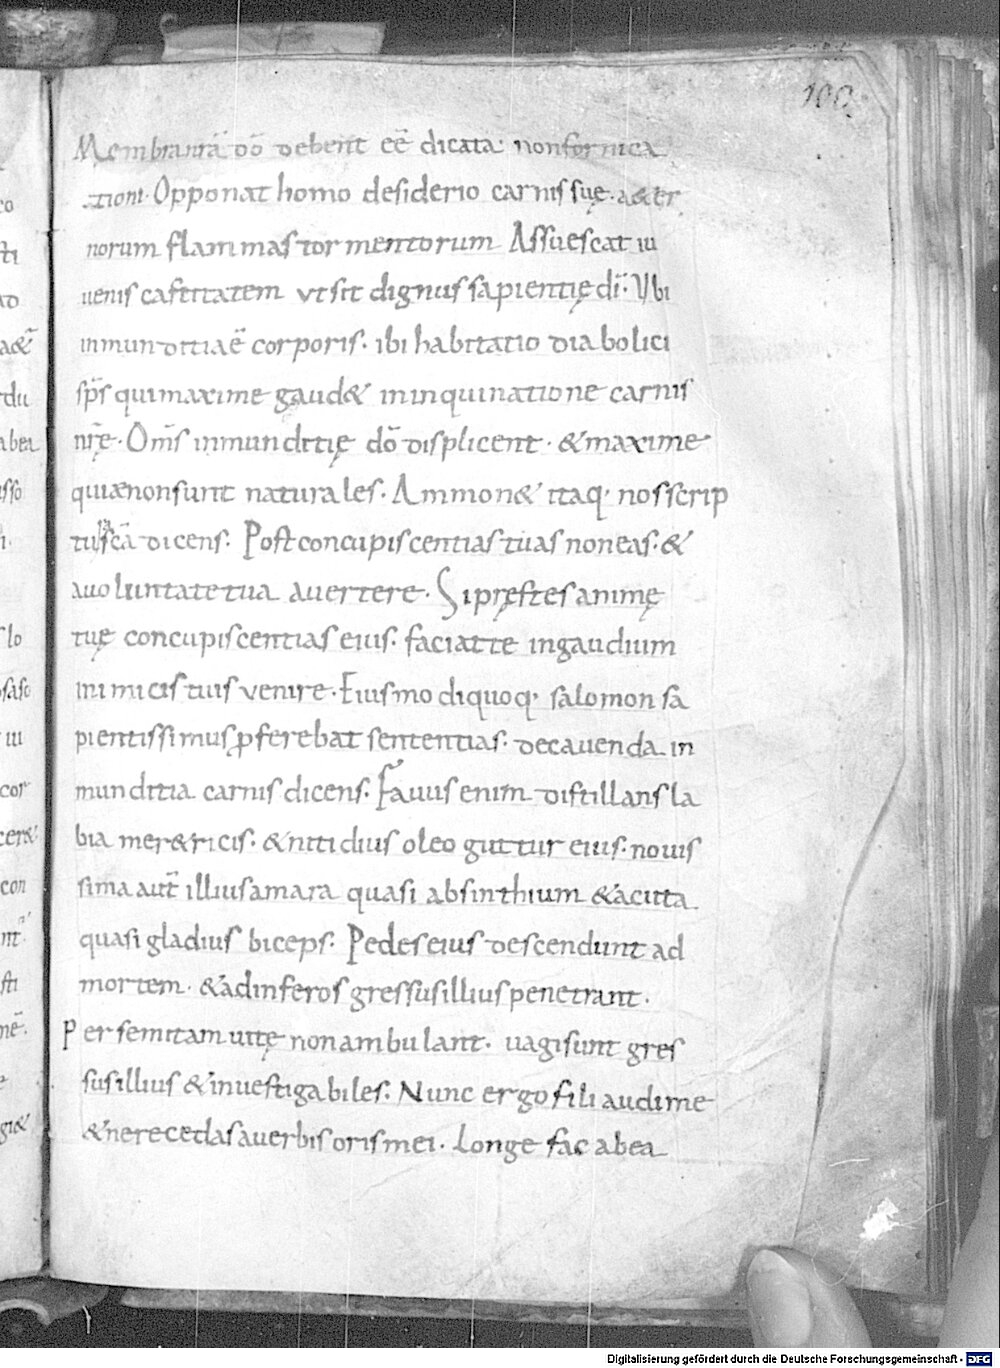 100
Membranr̄a d̄o debent eē dicata· non fornica
tioni· Opponat homo desiderio carnis suę· & ęter
norum flammas tormentorum Assuescat iu
uenis castitatem ut sit dignus sapientię dī· Ubi
inmunditia ē corporis· ibi habitatio diabolici
sp̄s qui maxime gaud& in inquinatione carnis
nr̄ę· Om̄s inmunditię d̄o displicent· & maxime
quiænonsunt naturales· Ammon& itaq· nos scrip
tura sc̄a dicens· Post concupiscentias tuas non eas· &
a uoluntate tua auertere· Si pręstes animę
tuę concupiscentias eius· faciat te in gaudium
inimicis tuis venire· Eiusmodi quoq· salomon sa
pientissimus ꝓferebat sententias· de cauenda in
munditia carnis dicens· Fauus enim distillans la
bia mer&ricis· & nitidius oleo guttur eius· nouis
sima aut̄ illius amara quasi absinthium & acuta
quasi gladius biceps· Pedes eius descendunt ad
mortem· & ad inferos gressus illius penetrant·
Per semitam uitę non ambulant· uagi sunt gres
sus illius & inuestigabiles· Nunc ergo fili audi me
& ne recedas a uerbis oris mei· Longe fac abea
Digitalisierung gefördert durch die Deutsche Forschungsgemeinschaft - DFG